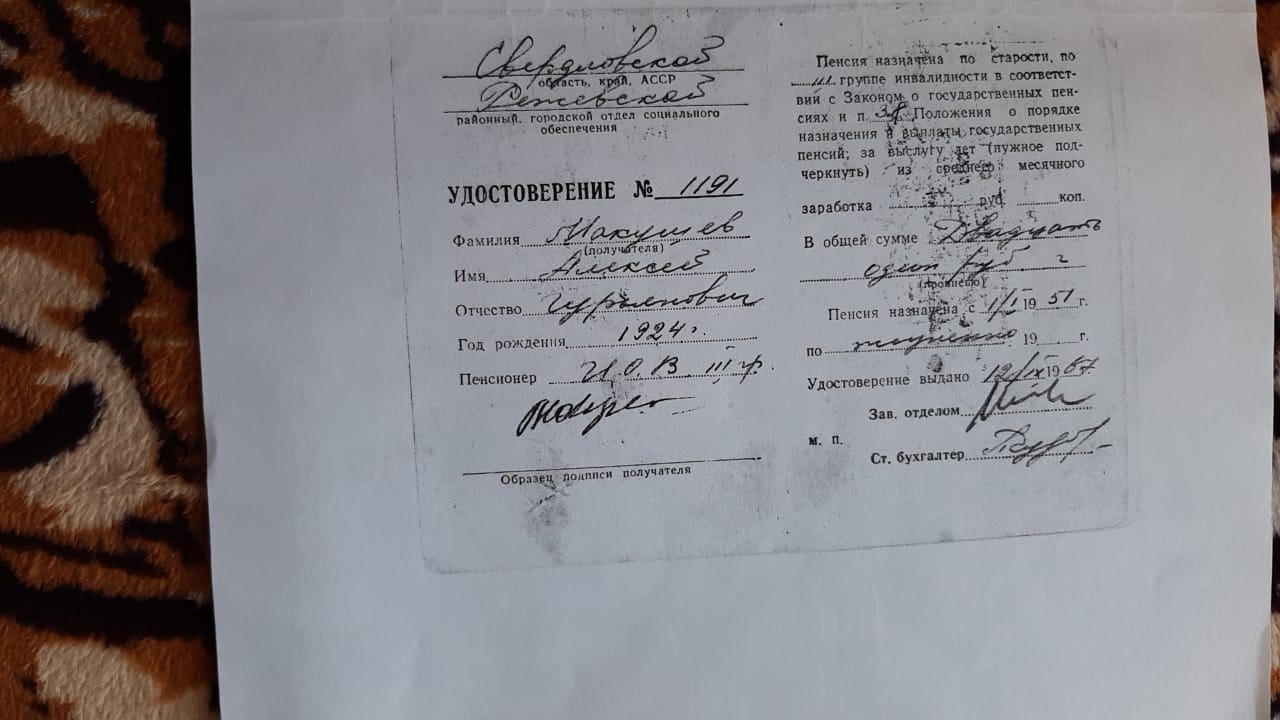 Свердловской
область, край, АССР
Режевской
районный, городской отдел социального
обеспечения
УДОСТОВЕРЕНИЕ № 1191
Фамилия Макушев
(получателя)
Имя Алексей
Отчество Гурьянович
Год рождения 1924 г.
Пенсионер И.О.В. III гр.
Образец подписи получателя
Пенсия назначена по старости, по
III группе инвалидности в соответст-
вии с Законом о государственных пен-
сиях и п. 38 Положения о порядке
назначения и выплаты государственных
пенсий; за выслугу лет (нужное под-
черкнуть) из среднего месячного
заработка руб. коп.
В общей сумме Двадцать
один руб
(прописью)
Пенсия назначена с 1/I 19 51 г.
по 19 г.
Удостоверение выдано 12/IX 19 67
Зав. отделом
м. п.
Ст. бухгалтер